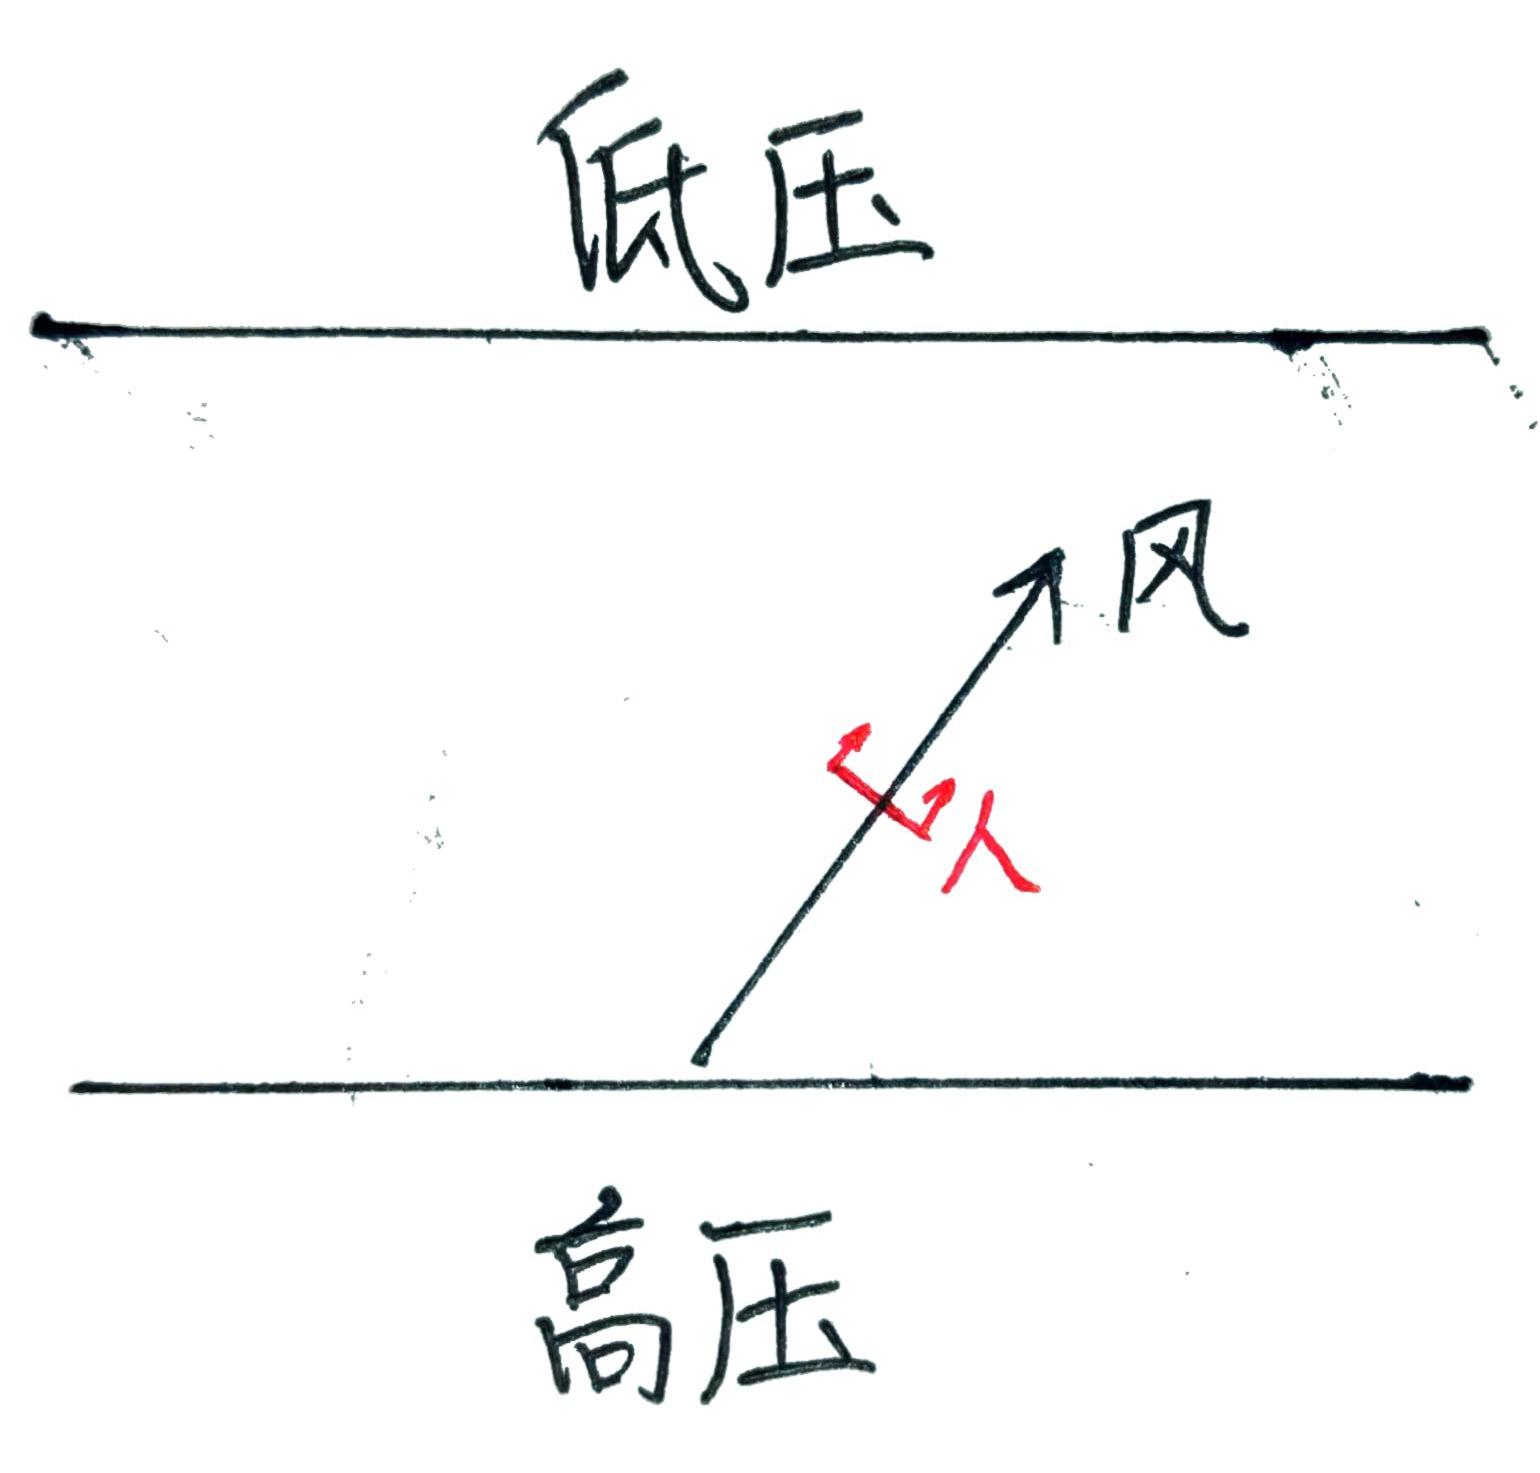 低压
风
人
高压